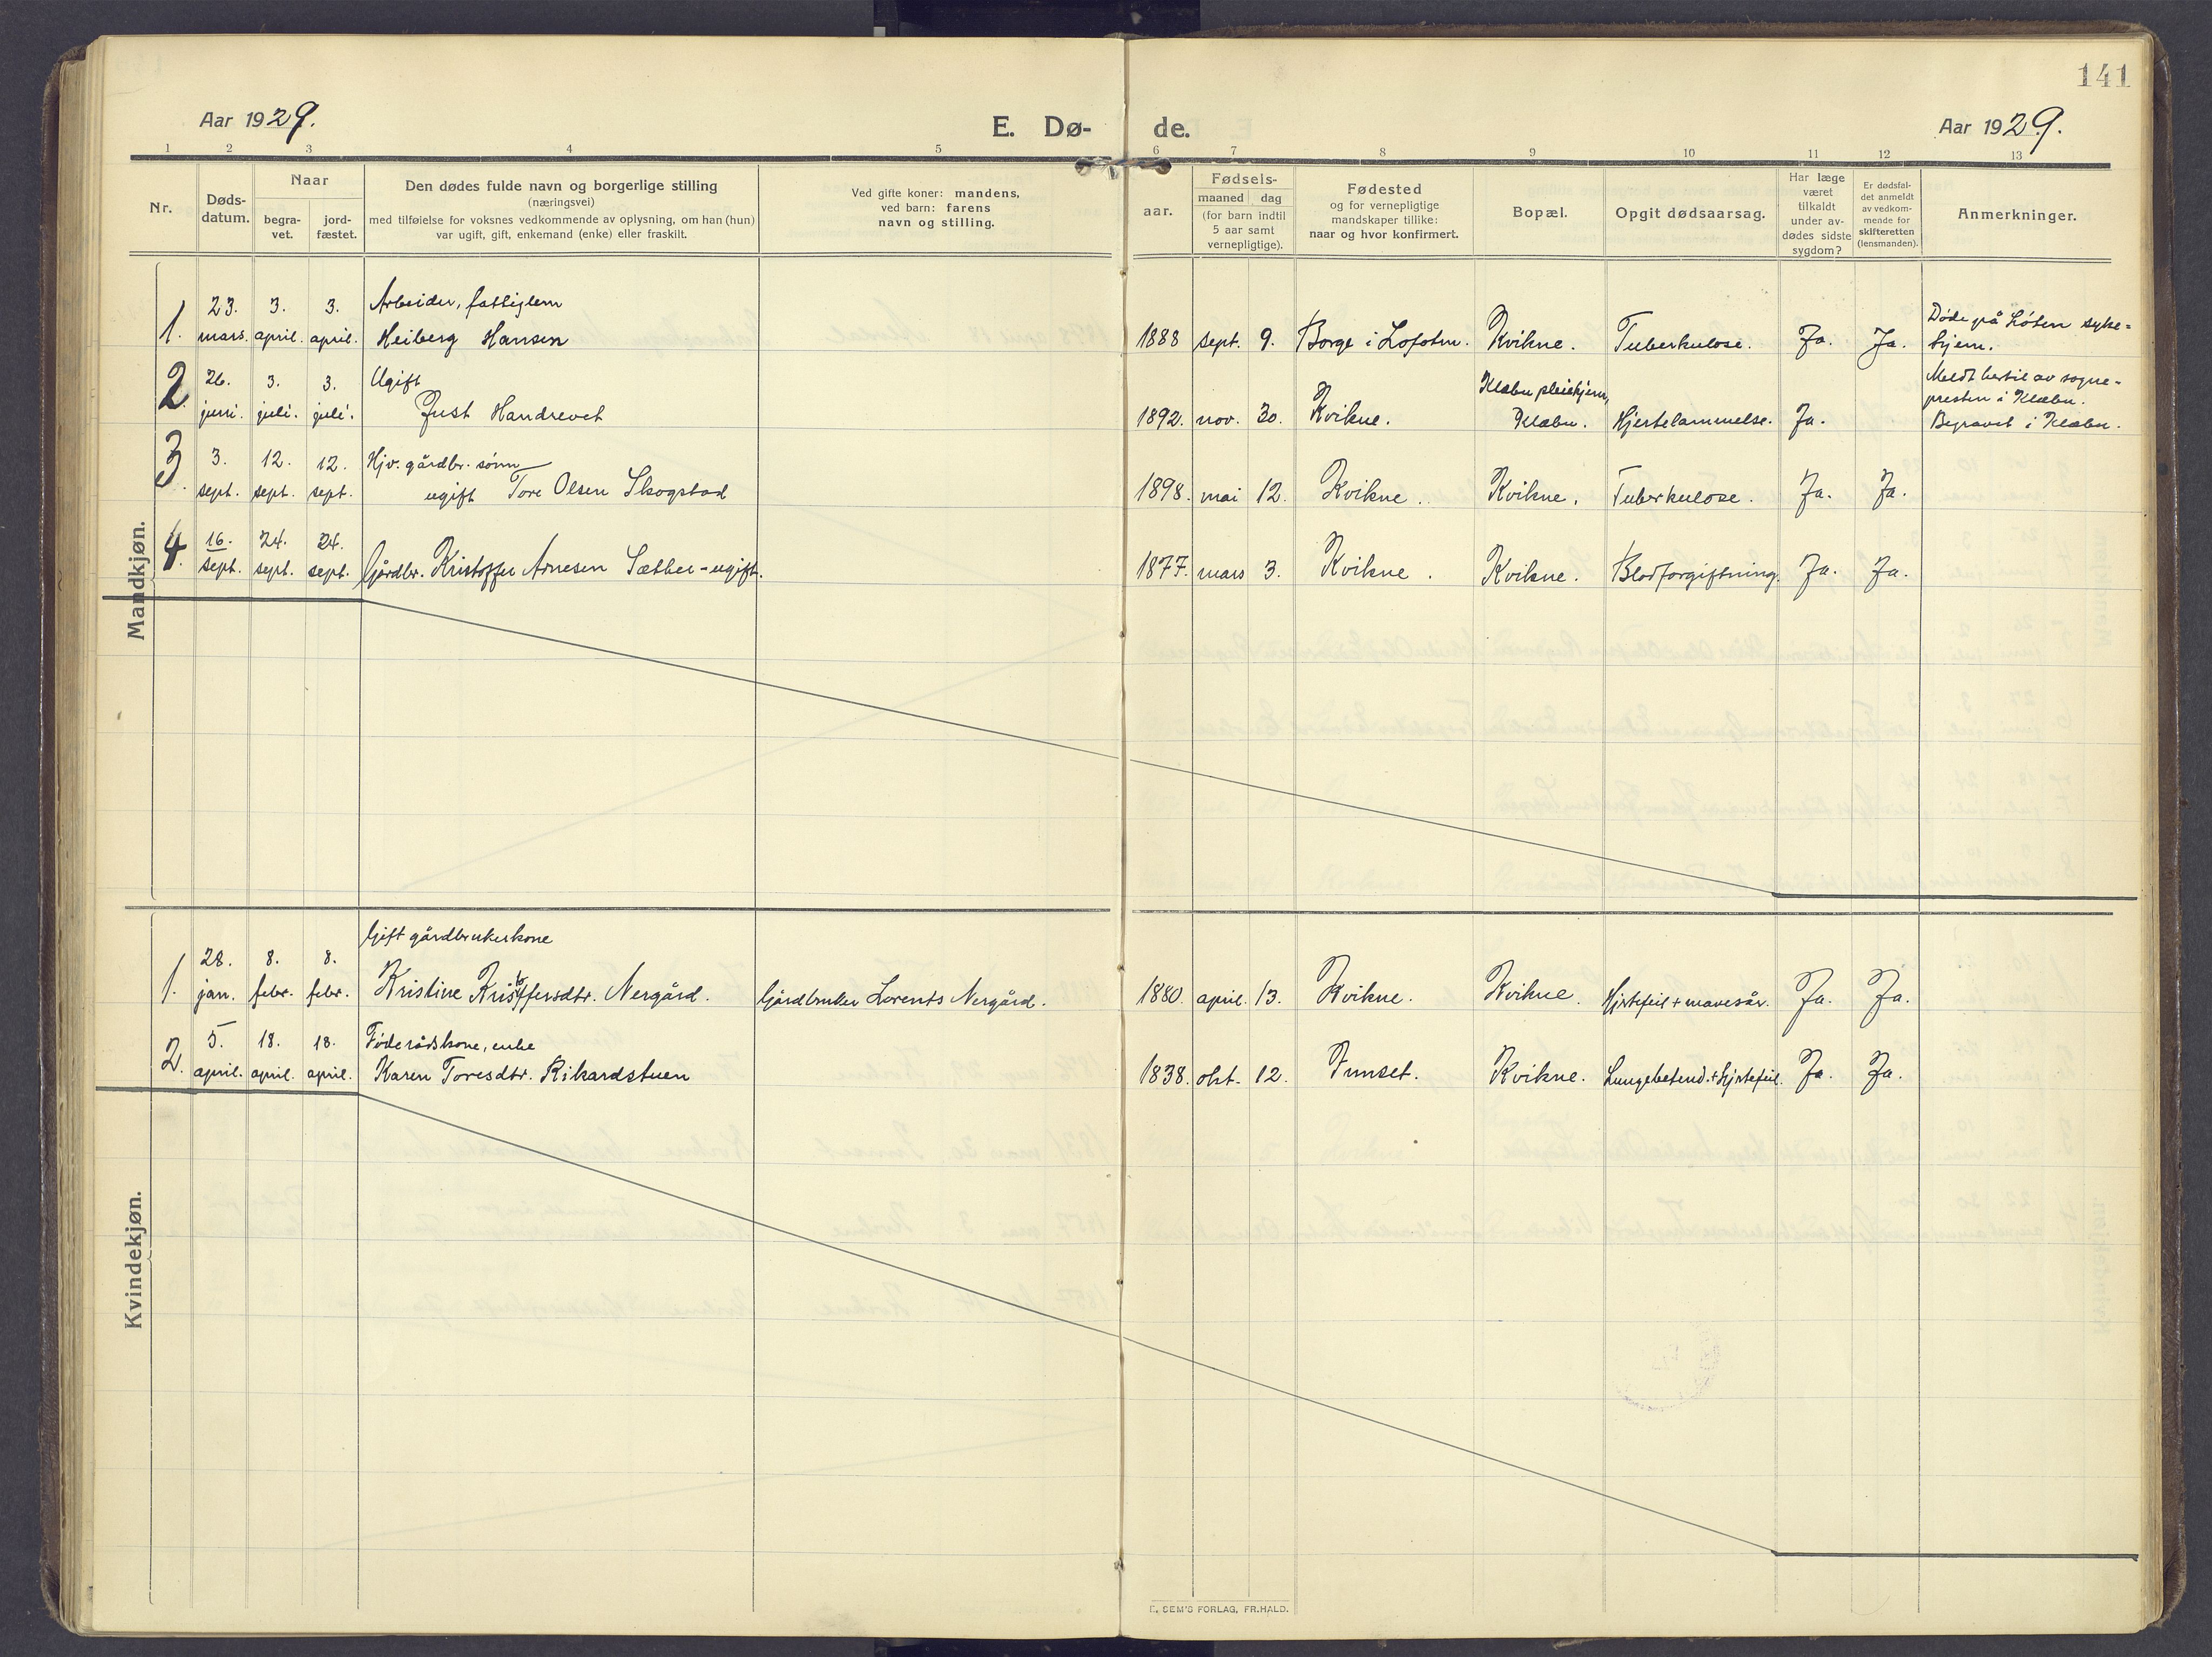 141
Aar 1929.
E. Dø- de.
Aar 1929.
1 2 3 4 5 6 7 8 9 10 11 12 13
Nr.
Døds-
datum.
Naar
begra-
vet.
jord-
fæstet.
Den dødes fulde navn og borgerlige stilling
(næringsvei)
med tilføielse for voksnes vedkommende av oplysning, om han (hun)
var ugift, gift, enkemand (enke) eller fraskilt.
Ved gifte koner: mandens,
ved barn: farens
navn og stilling.
Fødsels-
aar.
maaned dag
(for barn indtil
5 aar samt
vernepligtige).
Fødested
og for vernepligtige
mandskaper tillike:
naar og hvor konfirmert.
Bopæl.
Opgit dødsaarsag.
Har læge
været
tilkaldt
under av-
dødes sidste
sygdom?
Er dødsfal-
det anmeldt
av vedkom-
mende for
skifteretten
(lensmanden).
Anmerkninger.
Mandkjøn.
23. 3. 3. Arbeider, fattiglem Døde på Løten syke=
1. mars. april. april. Heiberg Hansen 1888 sept. 9. Borge i Lofoten. Kvikne. Tuberkulose. Ja. Ja. hjem.
26. 3. 3. Ugift Klæbu pleiehjem, Meldt hertil av sogne-
presten i Klæbu.
2. juni. juli. juli. Just Handrevet 1892. nov. 30. Kvikne. Klæbu. Hjertelammelse. Ja. Begravet i Klæbu.
3. 12. 12. Hjv. gårdbr. sønn
3. sept. sept. sept. ugift Tore Olsen Skogstad 1898. mai 12. Kvikne. Kvikne. Tuberkulose. Ja. Ja.
16. 24. 24.
4. sept. sept. sept. Gårdbr. Kristoffer Arnesen Sæther - ugift. 1877. mars 3. Kvikne. Kvikne. Blodforgiftning. Ja. Ja.
Kvindekjøn.
28. 8. 8. Gift gårdbrukerkone
1. jan. febr. febr. Kristine Kristoffersdtr. Nergård. Gårdbruker Lorents Nergård. 1880. april. 13. Kvikne. Kvikne. Hjertefeil + mavesår. Ja. Ja.
5. 18. 18. Føderådskone, enke
2. april. april. april. Karen Toresdtr. Rikardstuen 1838. okt. 12. Innset. Kvikne. Lungebetend. + Hjertefeil. Ja. Ja.
E. SEM'S FORLAG, FR.HALD.